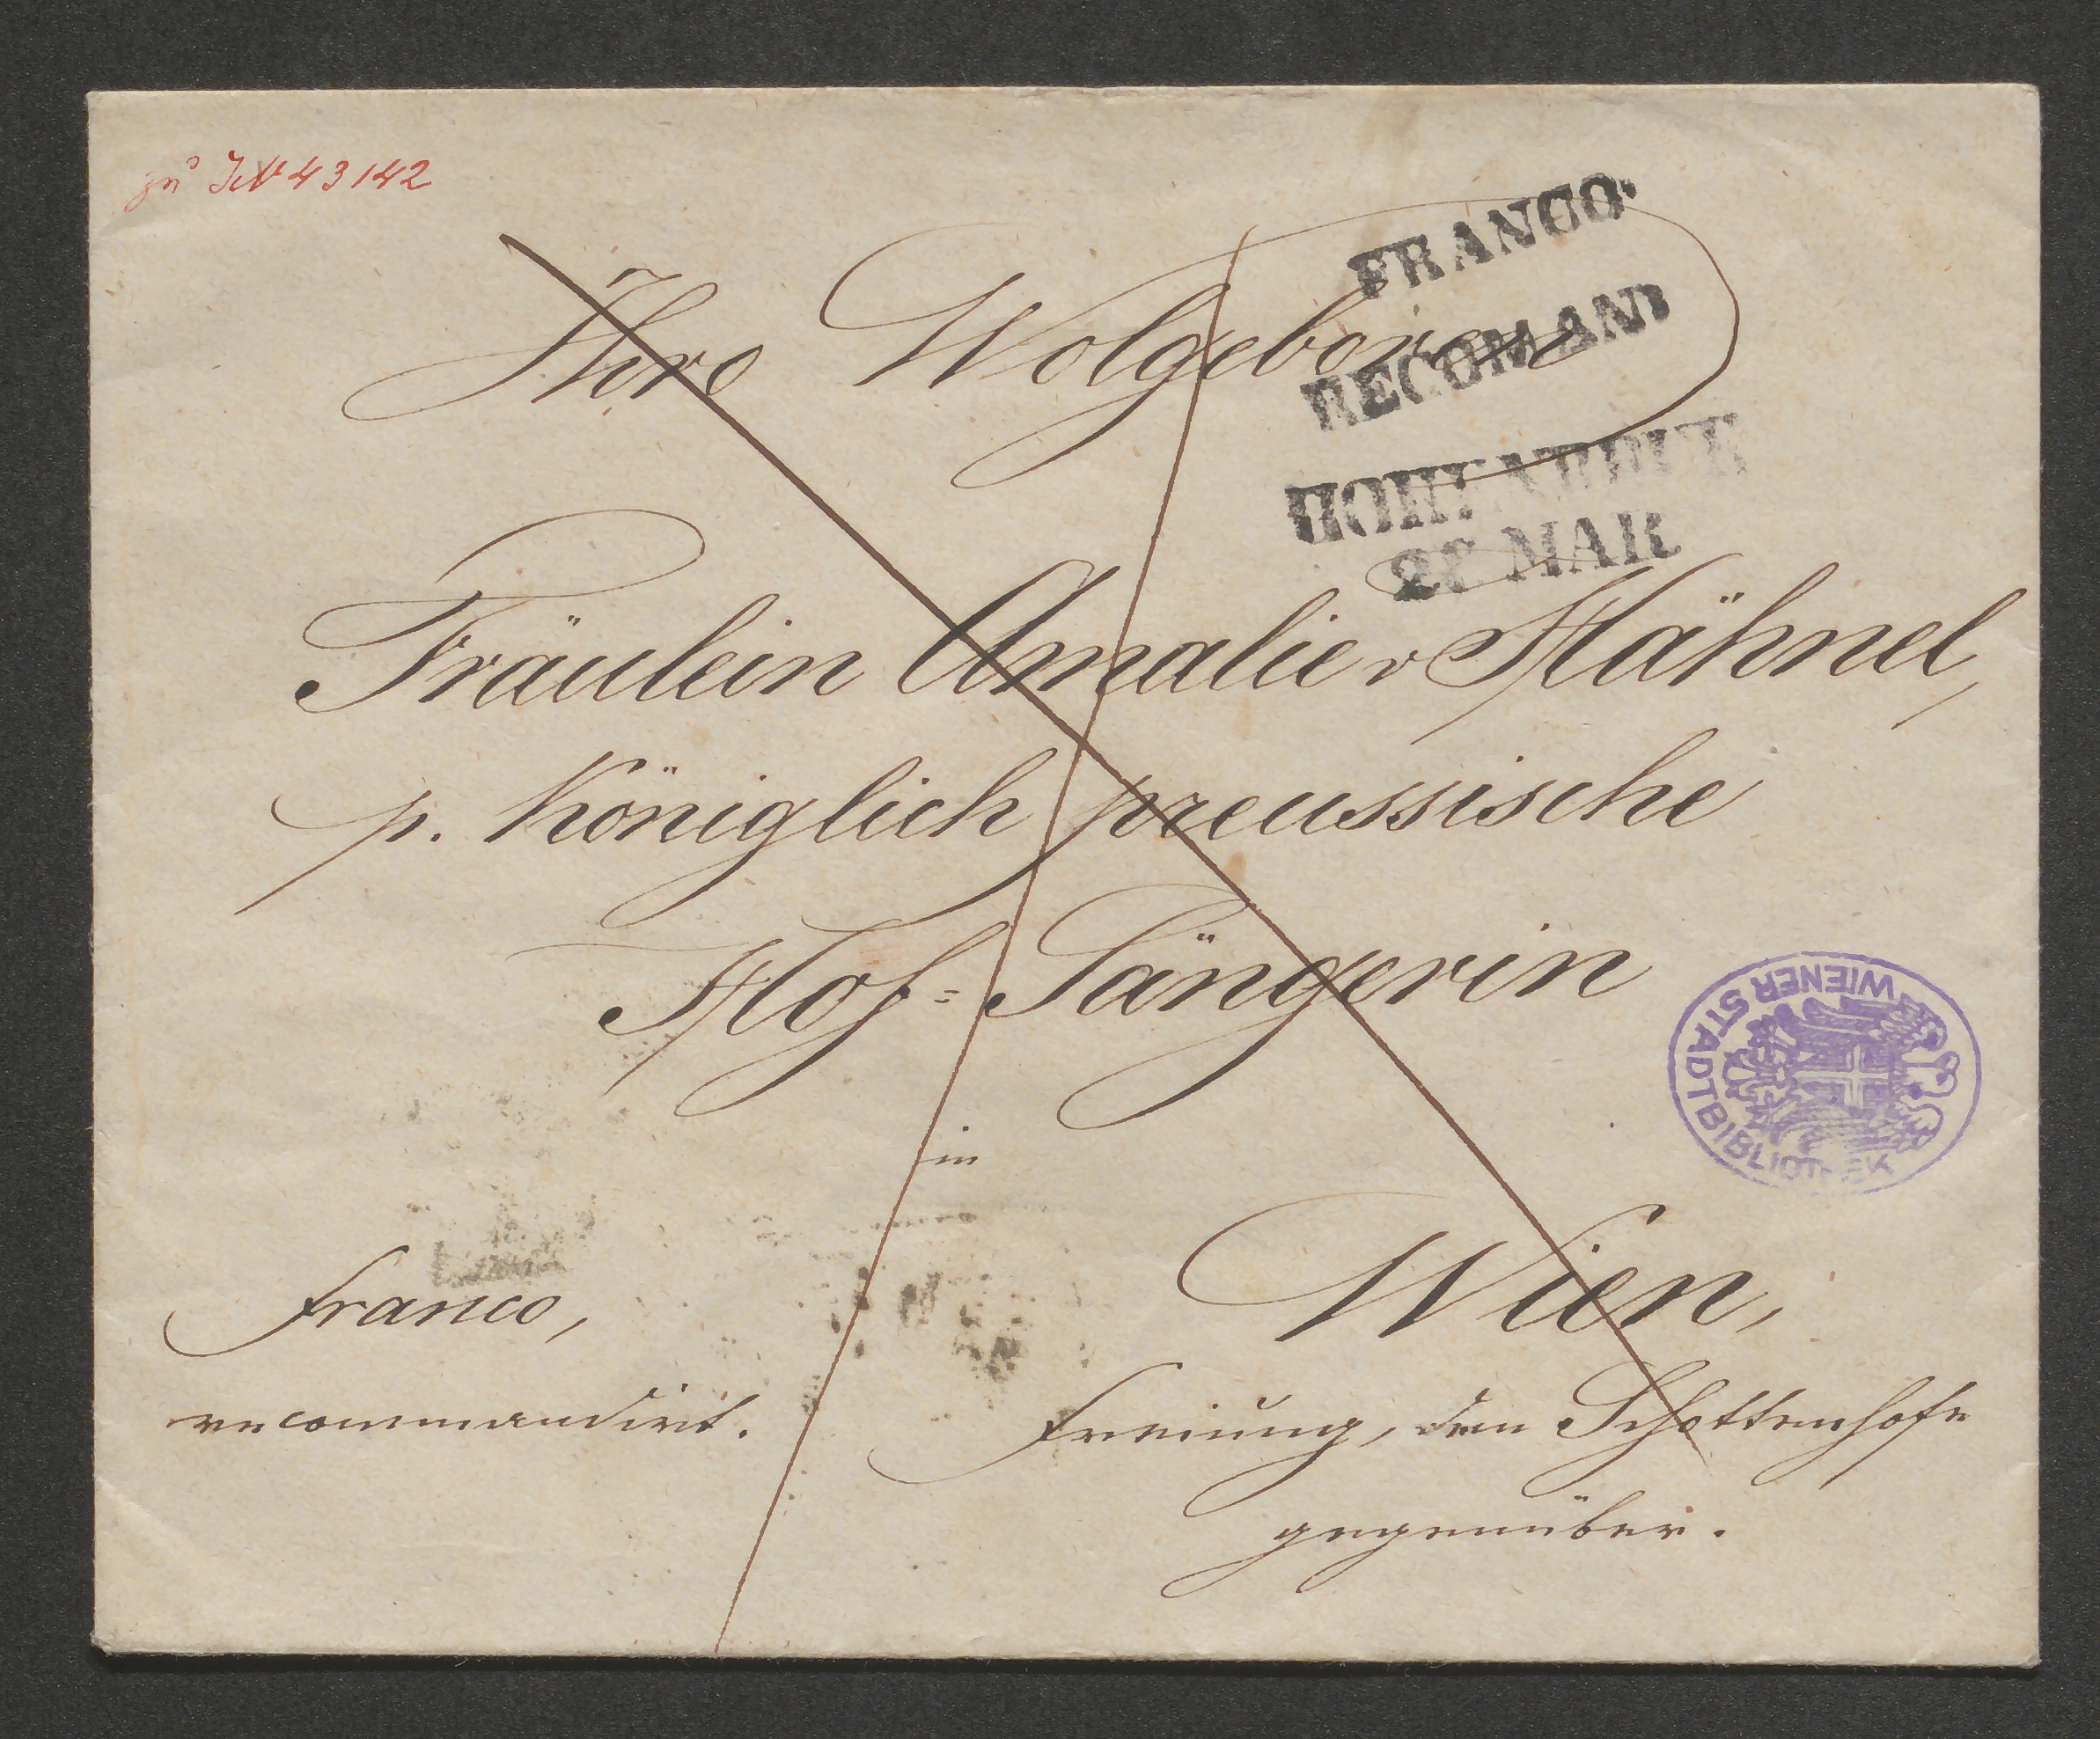 zu IN 43142
FRANCO.
Ihro Wolgeboren
RECOMAND
MAR
Fräulein Amalie v Hähnel,
p. königlich preussische
Hof=Sängerin
WIENER STADTBIBLIOTHEK
in
Wien,
franco,
recommandirt.
Freiung, dem Schottenhofe
gegenüber.